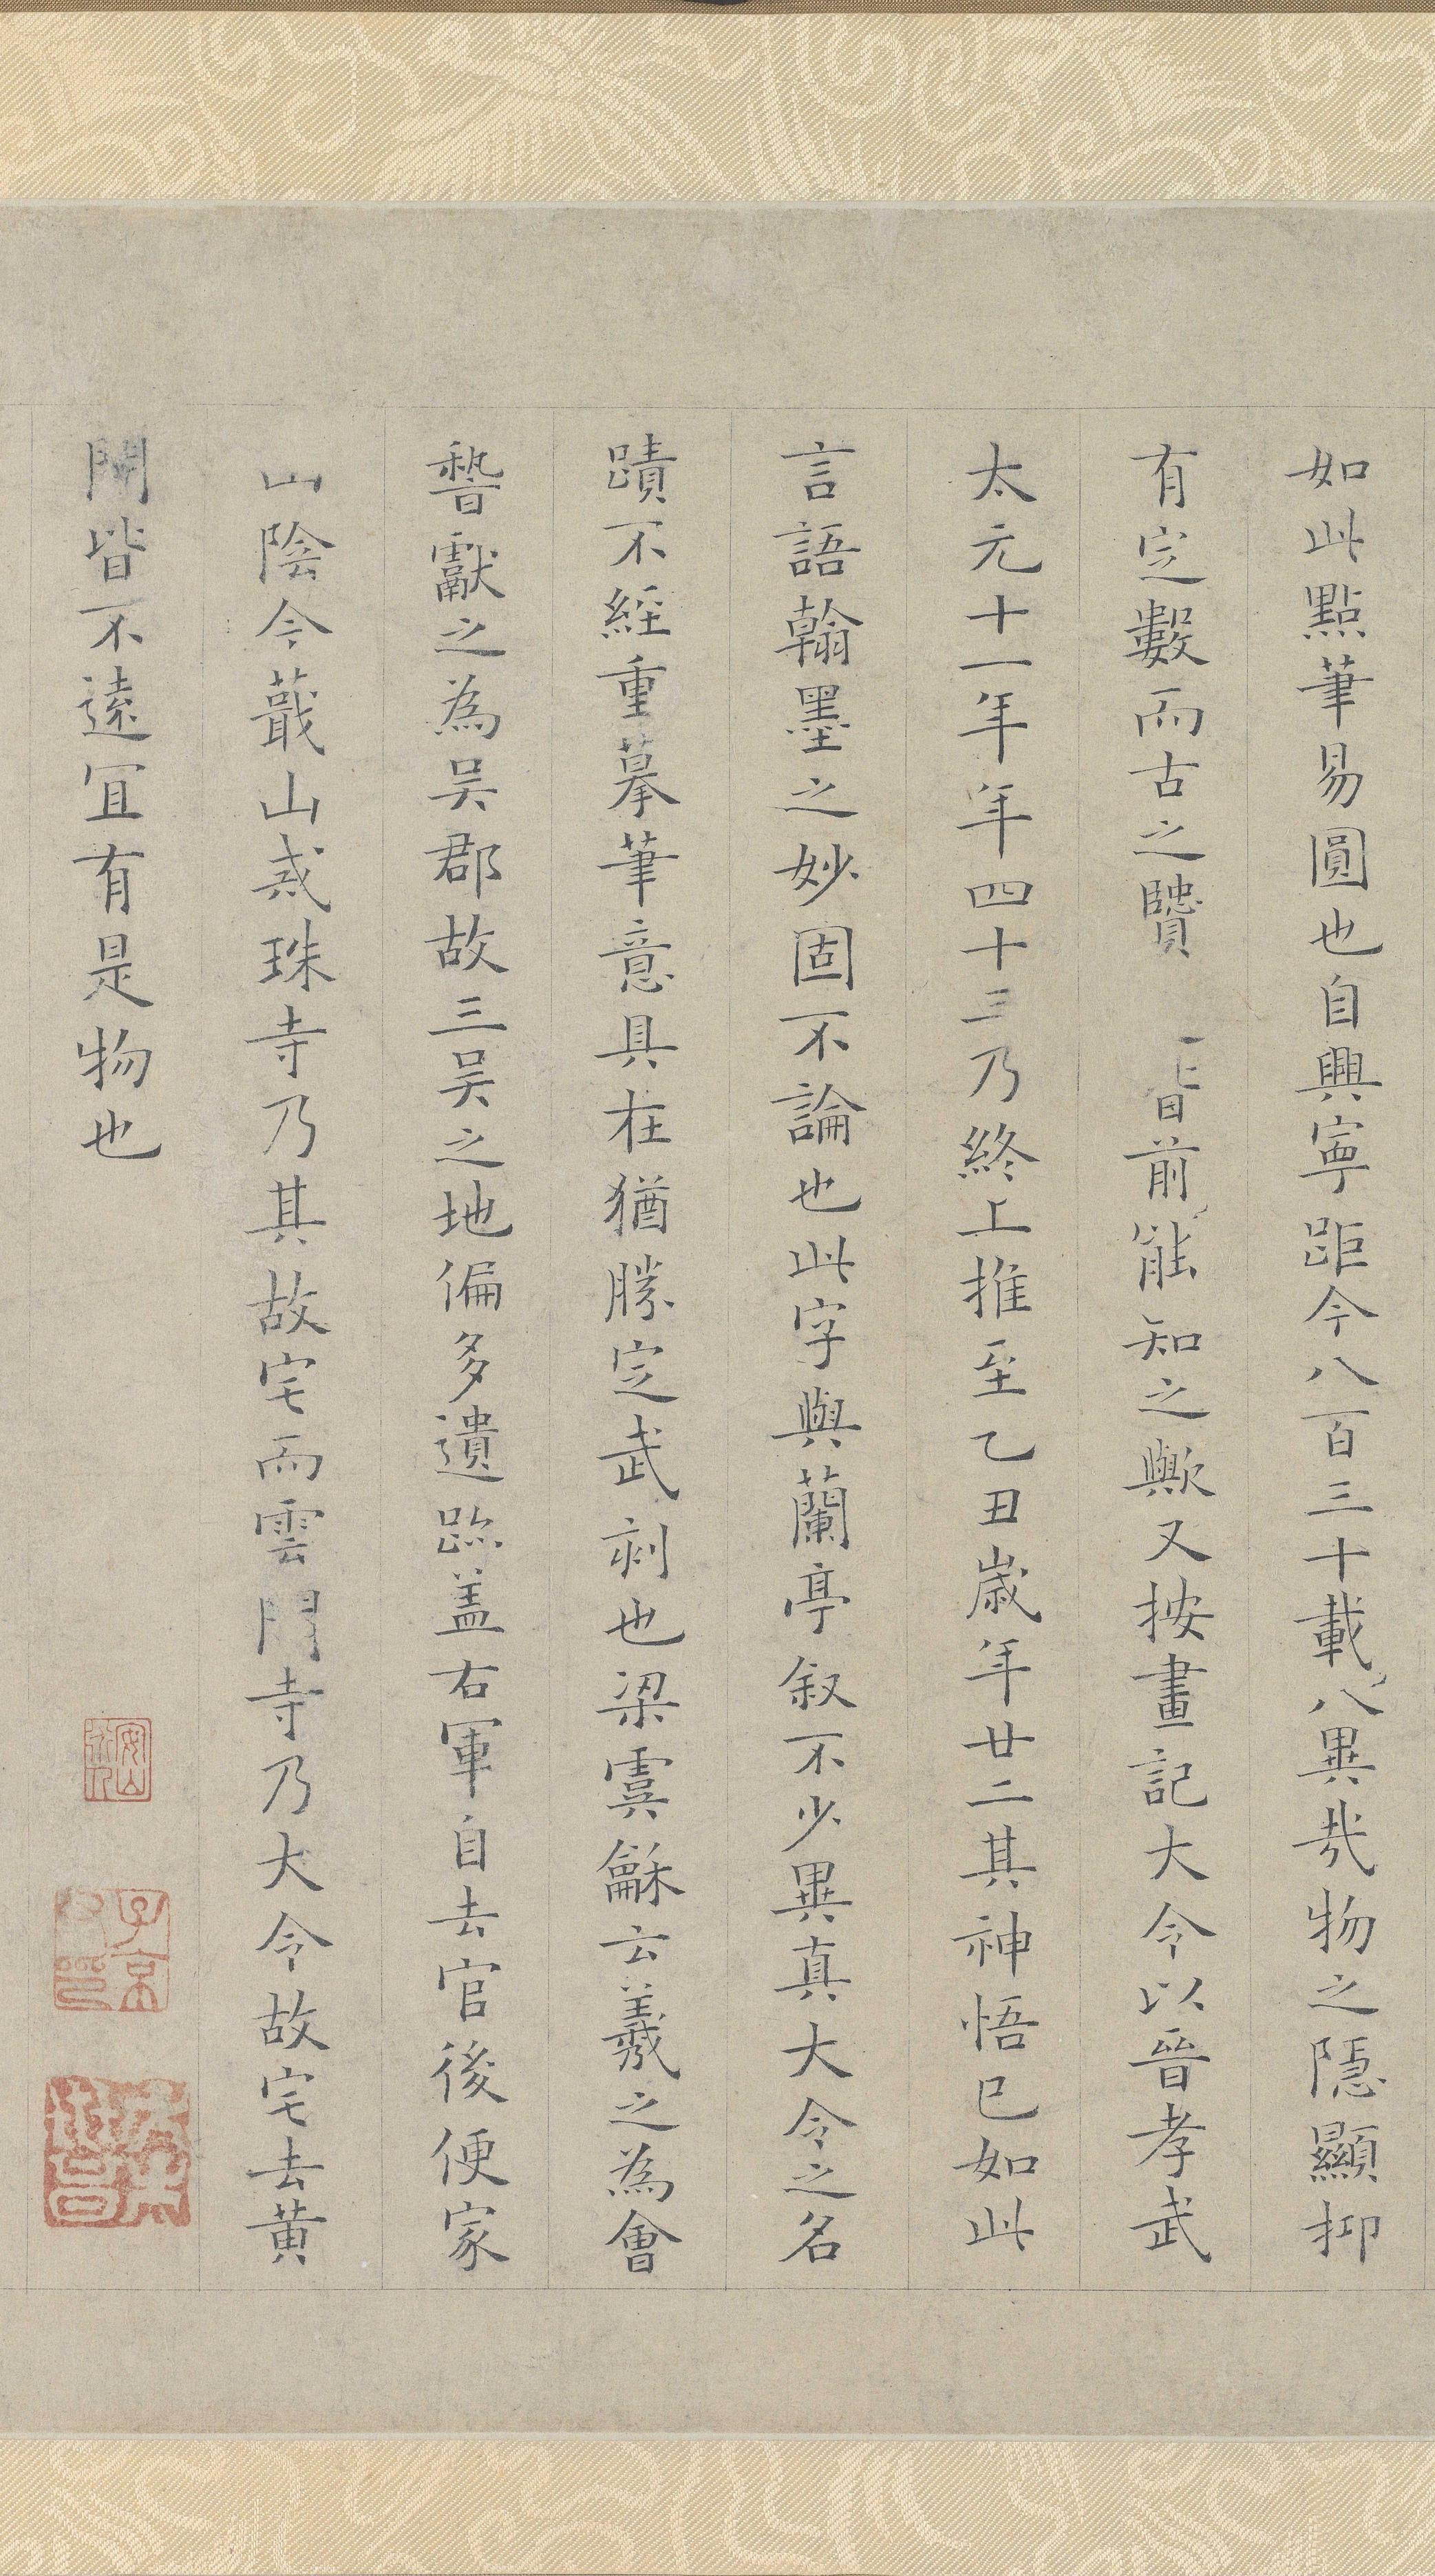 如此點筆易圓也自興寧距今八百三十載八異哉物之隱顯抑
有定數而古之賢前能知之歟又按畫記大令以晉孝武
太元十一年年四十三乃終上推至乙丑歲年廿二其神悟已如此
言語翰墨之妙固不論也此字與蘭亭叙不少異真大令之名
蹟不經重摹筆意具在猶勝定武刻也梁虞龢云羲之為會
稽獻之為吴郡故三吴之地偏多遺跡盖右軍自去官後便家
山陰今蕺山戒珠寺乃其故宅而雲門寺乃大令故宅去黄
閍皆不遠宜有是物也
子京